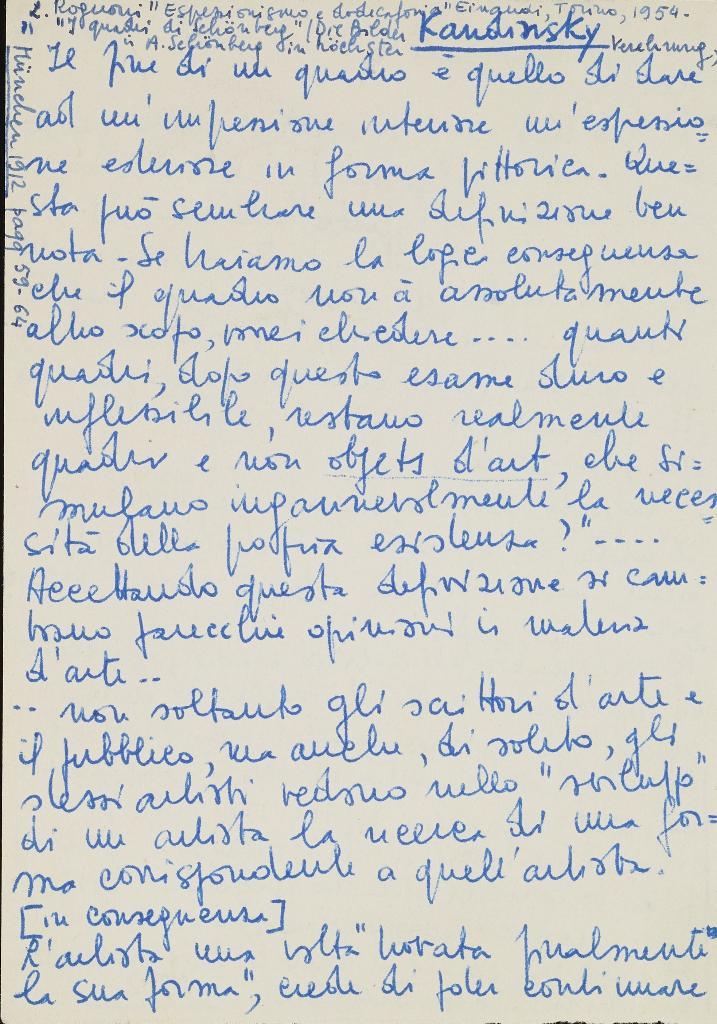 L. Rognoni "Espressionismo e dodecafonia" Einaudi, Torino, 1954.
"I quadri di Schönberg" (Die Bilder
in A. Schönberg in höchster Verehrung,
München 1912 pagg 59-64
Kandinsky
"Il fine di un quadro è quello di dare
ad un'impressione interiore un'espressio=
ne esteriore in forma pittorica. Que=
sta può sembrare una definizione ben
nota - Se traiamo la logica conseguenza
che il quadro non à assolutamente
altro scopo, vorrei chiedere .... quanti
quadri, dopo questo esame duro e
inflessibile, restano realmente
quadri e non objets d'art, che si=
mulano ingannevolmente la neces=
sità della propria esistenza?" ....
Accettando questa definizione si cam=
biano parecchie opinioni in materia
d'arte ..
.. non soltanto gli scrittori d'arte e
il pubblico, ma anche, di solito, gli
stessi artisti vedono nello "sviluppo"
di un artista la ricerca di una for=
ma corrispondente a quell'artista.
[in conseguenza]
L'artista una volta "trovata finalmente
la sua forma", crede di poter continuare